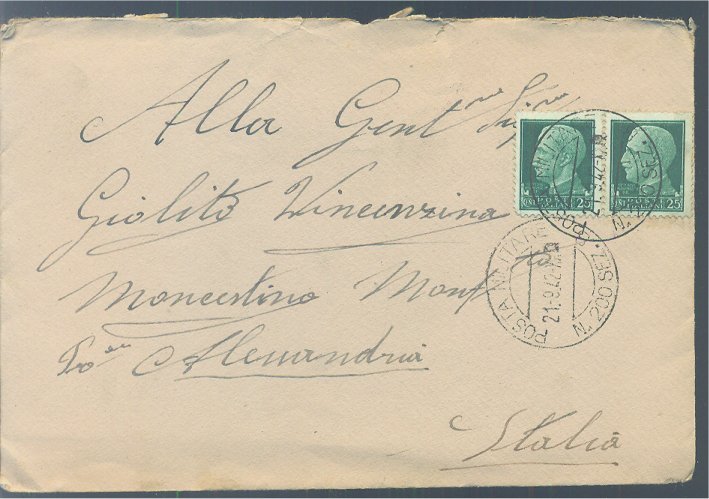 Alla Gent.ma Sig.na
Giolito Vincenzina
Moncestino Monf.to
Pro.cia Alessandria
Italia
25
25
POSTA MILITARE N. 200 SEZ.
21.9.42.XX
POSTA MILITARE N. 200 SEZ.
21.9.42.XX